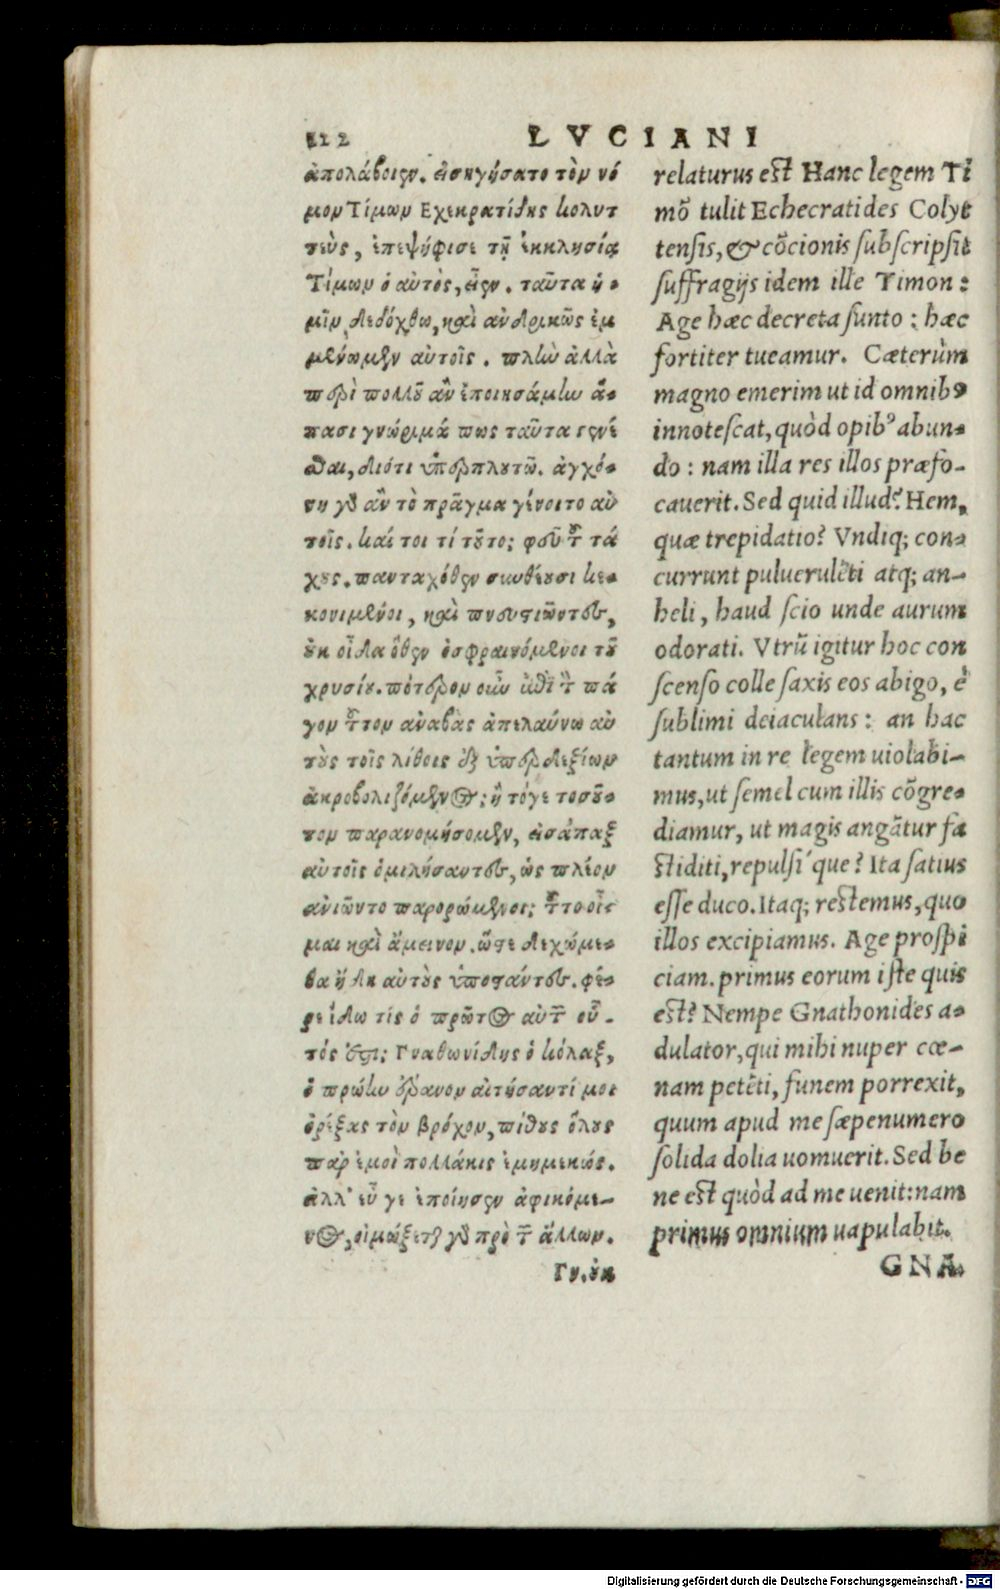 112
LVCIANI
ἀπολάβοιεν. εἰσηγήσατο τὸν νό
μον Τίμων Εχεκρατίδης κολυτ
τεὺς, ἐπεψήφισε τῇ ἐκκλησίᾳ
Τίμων ὁ αὐτὸς, εἶεν. ταῦτα ἡ-
μῖν δεδόχθω, καὶ ἀνδρικῶς ἐμ
μένωμεν αὐτοῖς. πλὴν ἀλλὰ
περὶ πολλοῦ ἂν ἐποιησάμην ἅ-
πασι γνώριμά πως ταῦτα γενέ
σθαι, διότι ὑπερπλουτῶ. ἀγχό-
νη γὰρ ἂν τὸ πρᾶγμα γένοιτο αὐ
τοῖς. καί τοι τί τοῦτο; φεῦ τοῦ τά
χους. πανταχόθεν συνθέουσι κε-
κονιμένοι, καὶ πνευστιῶντες,
οὐκ οἶδα ὅθεν ὀσφραινόμενοι τοῦ
χρυσίου. πότερον οὖν ἐπὶ τὸν πά
γον τοῦτον ἀναβὰς ἀπελαύνω αὐ
τοὺς τοῖς λίθοις ἐξ ὑπερδεξίων
ἀκροβολιζόμενος; ἢ τόγε τοσοῦ-
τον παρανομήσομεν, εἰσάπαξ
αὐτοῖς ὁμιλήσαντες, ὡς πλέον
ἀνιῶντο παρορώμενοι; τοῦτο οἶ-
μαι καὶ ἄμεινον. ὥστε δεχώμε-
θα ἤδη αὐτοὺς ὑποστάντες. φέ-
ρε ἴδω τίς ὁ πρῶτος αὐτῶν οὗ-
τός ἐστι; Γναθωνίδης ὁ κόλαξ,
ὁ πρώην ἔρανον αἰτήσαντί μοι
ὀρέξας τὸν βρόχον, πίθους ὅλους
παρ' ἐμοὶ πολλάκις ἐμημεκώς.
ἀλλ' εὖ γε ἐποίησεν ἀφικόμε-
νος, οἰμώξεται γὰρ πρὸ τῶν ἄλλων.
Γν. οὐκ
relaturus est Hanc legem Ti
mō tulit Echecratides Colyt
tensis, & cōcionis subscripsit
suffragijs idem ille Timon:
Age hæc decreta sunto: hæc
fortiter tueamur. Cæterùm
magno emerim ut id omnibꝰ
innotescat, quòd opibꝰ abun-
do: nam illa res illos præfo-
cauerit. Sed quid illud? Hem,
quæ trepidatio? Vndiq; con-
currunt puluerulēti atq; an-
heli, haud scio unde aurum
odorati. Vtrū igitur hoc con
scenso colle saxis eos abigo, è
sublimi deiaculans: an hac
tantum in re legem uiolabi-
mus, ut semel cum illis cōgre-
diamur, ut magis angātur fa
stiditi, repulsi´que? Ita satius
esse duco. Itaq; restemus, quo
illos excipiamus. Age prospi
ciam. primus eorum iste quis
est? Nempe Gnathonides a-
dulator, qui mihi nuper cœ-
nam petēti, funem porrexit,
quum apud me sæpenumero
solida dolia uomuerit. Sed be
ne est quòd ad me uenit: nam
primus omnium uapulabit.
GNA.
Digitalisierung gefördert durch die Deutsche Forschungsgemeinschaft - DFG